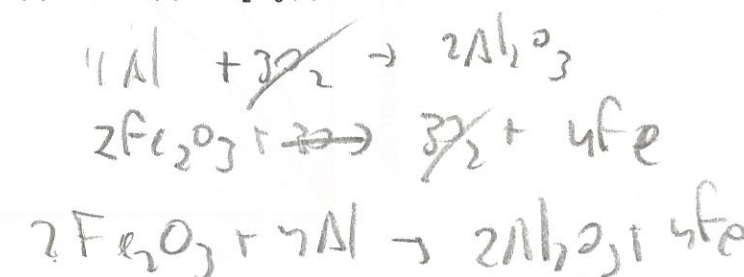 4Al + 3O₂ → 2Al₂O₃
2Fe₂O₃ + → 3O₂ + 4Fe
2Fe₂O₃ + 4Al → 2Al₂O₃ + 4Fe